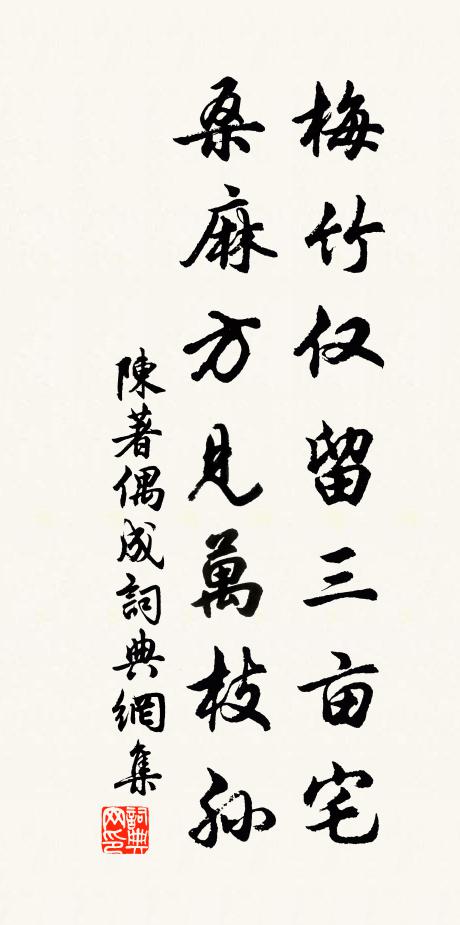 梅竹仅留三亩宅
桑麻方见萬枝孙
陳著偶成詞典網集
詞典网印